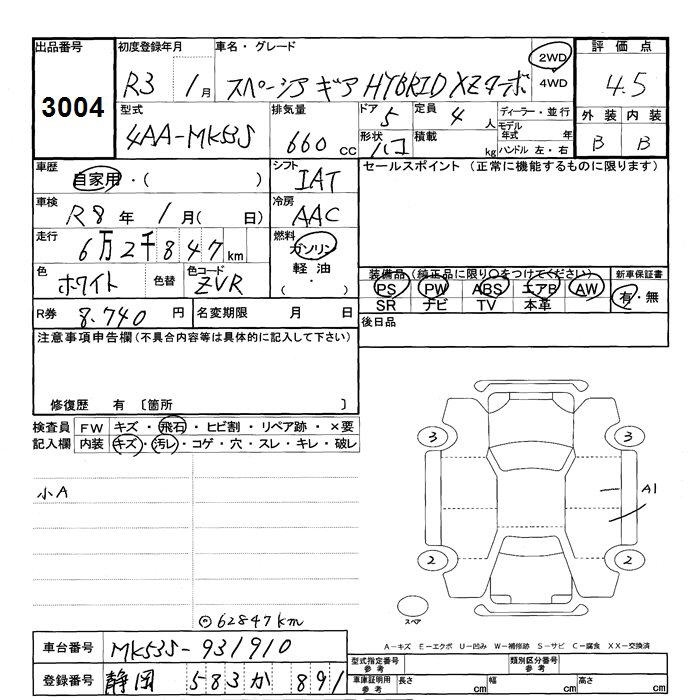 出品番号 初度登録年月 車名・グレード 2WD 評価点
3004 R3 1月 スペーシア ギア HYBRID XZターボ 4WD 4.5
型式 排気量 ドア 5 定員 4人 ディーラー・並行 外装 内装
4AA-MK53S 660cc 形状 ハコ 積載 kg モデル年式 年 ハンドル 左・右 B B
車歴 自家用・( ) シフト IAT セールスポイント (正常に機能するものに限ります)
車検 R8年 1月( 日) 冷房 AAC
走行 6万2千847km 燃料 ガソリン
軽油
( ・ )
色 ホワイト 色替 色コード ZVR
装備品(純正品に限り○をつけてください) 新車保証書
PS PW ABS エアB AW 有・無
SR ナビ TV 本革
R券 8,740円 名変期限 月 日 後日品
注意事項申告欄(不具合内容等は具体的に記入して下さい)
修復歴 有 〔箇所 〕
検査員 FW キズ・飛石・ヒビ割・リペア跡・×要
記入欄 内装 キズ・汚レ・コゲ・穴・スレ・キレ・破レ
小A
3 3
A1
2 2
スペア
62847km
A-キズ E-エクボ U-凹み W-補修跡 S-サビ C-腐食 XX-交換済
車台番号 MK53S-931910
型式指定番号 参考 類別区分番号 参考
登録番号 静岡 583 か 891
車庫証明用 参考 長さ cm 幅 cm 高さ cm